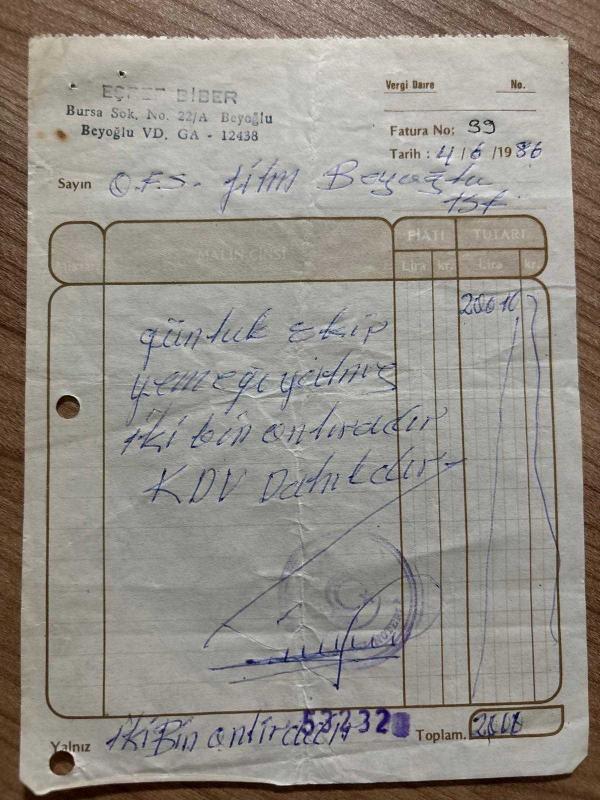 EŞREF BİBER
Bursa Sok. No. 22/A Beyoğlu
Beyoğlu VD. GA - 12438
Vergi Daire No.
Fatura No: 39
Tarih : 4/6/1986
Sayın O.F.S. film Beyoğlu
ist
MALIN CİNSİ FİATI TUTARI
Lira kr. Lira kr.
günlük ekip
yemeği
iki bin onliradır
KDV Dahildir
53232
Yalnız iki Bin onliradır Toplam.